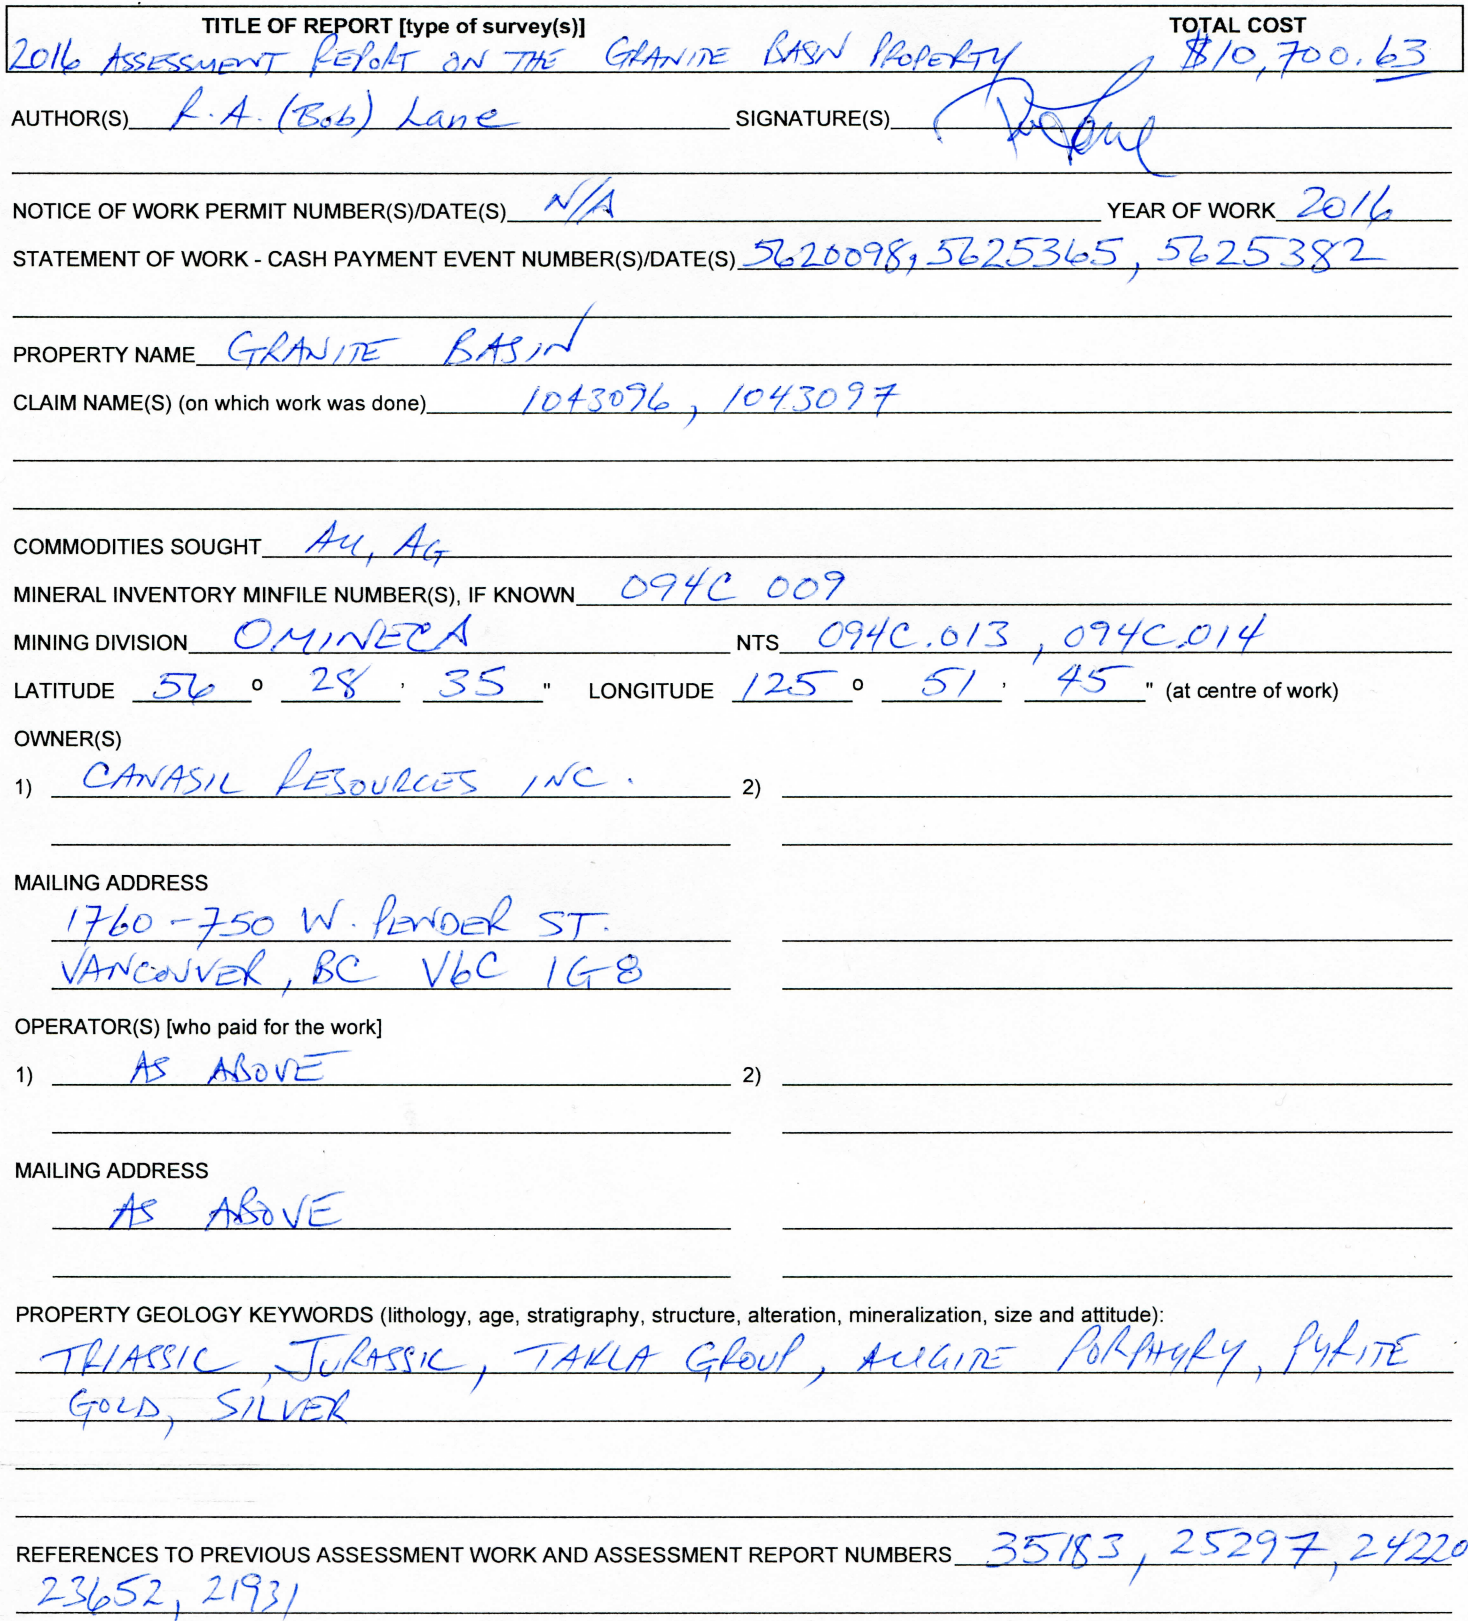 TITLE OF REPORT [type of survey(s)] TOTAL COST
2016 ASSESSMENT REPORT ON THE GRANITE BASIN PROPERTY $10,700.63
AUTHOR(S) R.A. (Bob) Lane SIGNATURE(S)
NOTICE OF WORK PERMIT NUMBER(S)/DATE(S) N/A YEAR OF WORK 2016
STATEMENT OF WORK - CASH PAYMENT EVENT NUMBER(S)/DATE(S) 5620098, 5625365, 5625382
PROPERTY NAME GRANITE BASIN
CLAIM NAME(S) (on which work was done) 1043096, 1043097
COMMODITIES SOUGHT Au, AG
MINERAL INVENTORY MINFILE NUMBER(S), IF KNOWN 094C 009
MINING DIVISION OMINECA NTS 094C.013, 094C.014
LATITUDE 56 o 28 ' 35 " LONGITUDE 125 o 51 ' 45 " (at centre of work)
OWNER(S)
1) CANASIL RESOURCES INC. 2)
MAILING ADDRESS
1760-750 W. PENDER ST.
VANCOUVER, BC V6C 1G8
OPERATOR(S) [who paid for the work]
1) AS ABOVE 2)
MAILING ADDRESS
AS ABOVE
PROPERTY GEOLOGY KEYWORDS (lithology, age, stratigraphy, structure, alteration, mineralization, size and attitude):
TRIASSIC, JURASSIC, TAKLA GROUP, AUGITE PORPHYRY, PYRITE
GOLD, SILVER
REFERENCES TO PREVIOUS ASSESSMENT WORK AND ASSESSMENT REPORT NUMBERS 35183, 25297, 24220
23652, 21931